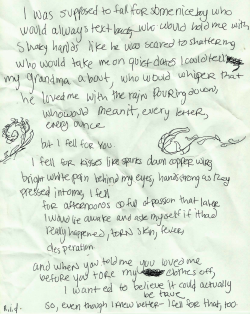 I was supposed to fall for some nice boy who
would always text back, who would hold me with
shaky hands like he was scared to shattering
who would take me on quiet dates I could tell
my grandma about, who would whisper that
he loved me with the rain pouring down,
who would mean it, every letter,
every ounce
but I fell for you
I fell for kisses like sparks down copper wire
bright white pain behind my eyes, hands strong as they
pressed into me, I fell
for afternoons so full of passion that later
I would lie awake and ask myself if it had
really happened, torn skin, fever,
desperation
and when you told me you loved me
before you tore my clothes off,
I wanted to believe it could actually
be true
so, even though I knew better I fell for that, too.